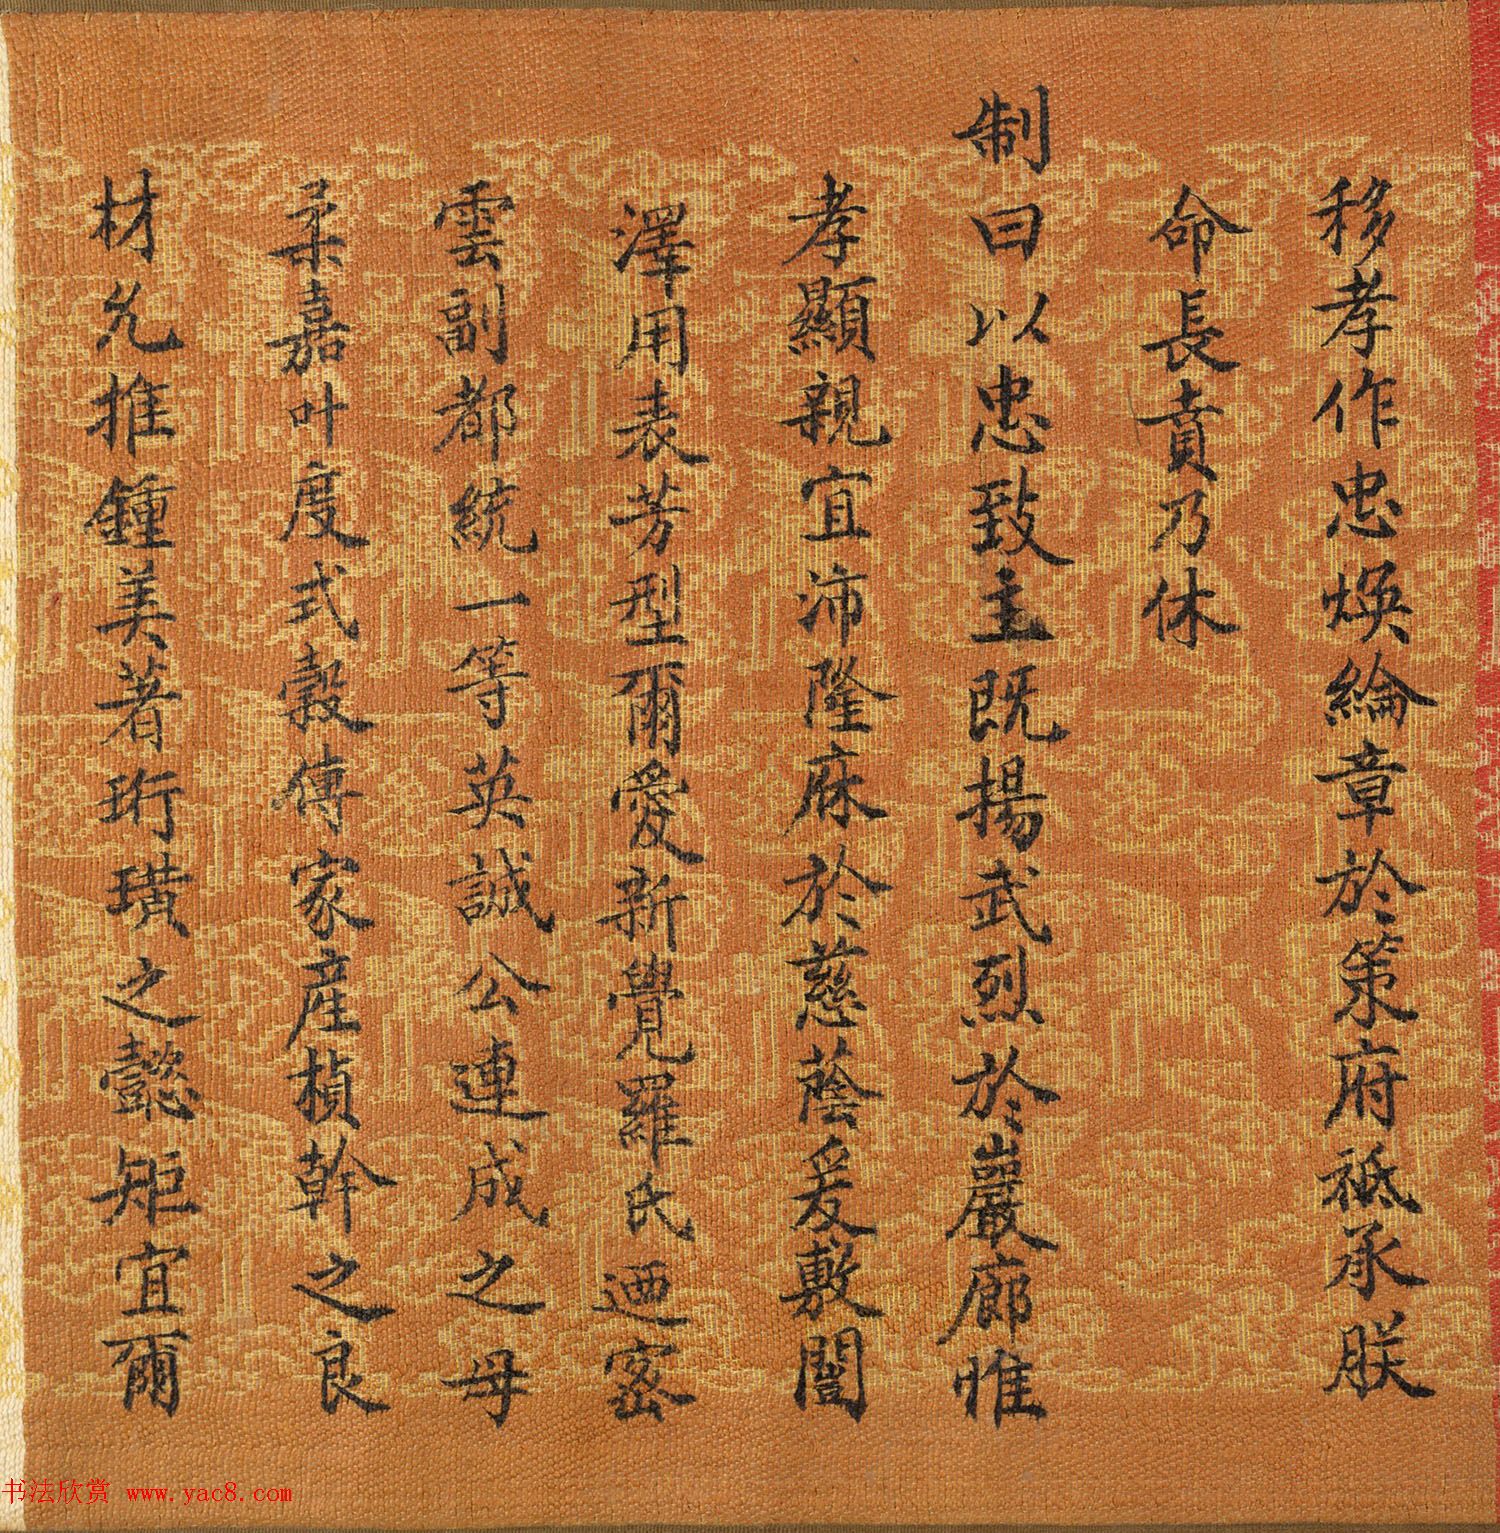 移孝作忠煥綸章於策府祗承朕
命長賁乃休
制曰以忠致主既揚武烈於巖廊惟
孝顯親宜沛隆庥於慈蔭爰敷閨
澤用表芳型爾愛新覺羅氏迺密
雲副都統一等英誠公連成之母
柔嘉叶度式穀傳家產楨幹之良
材允推鍾美著珩璜之懿矩宜爾
书法欣赏 www.yac8.com